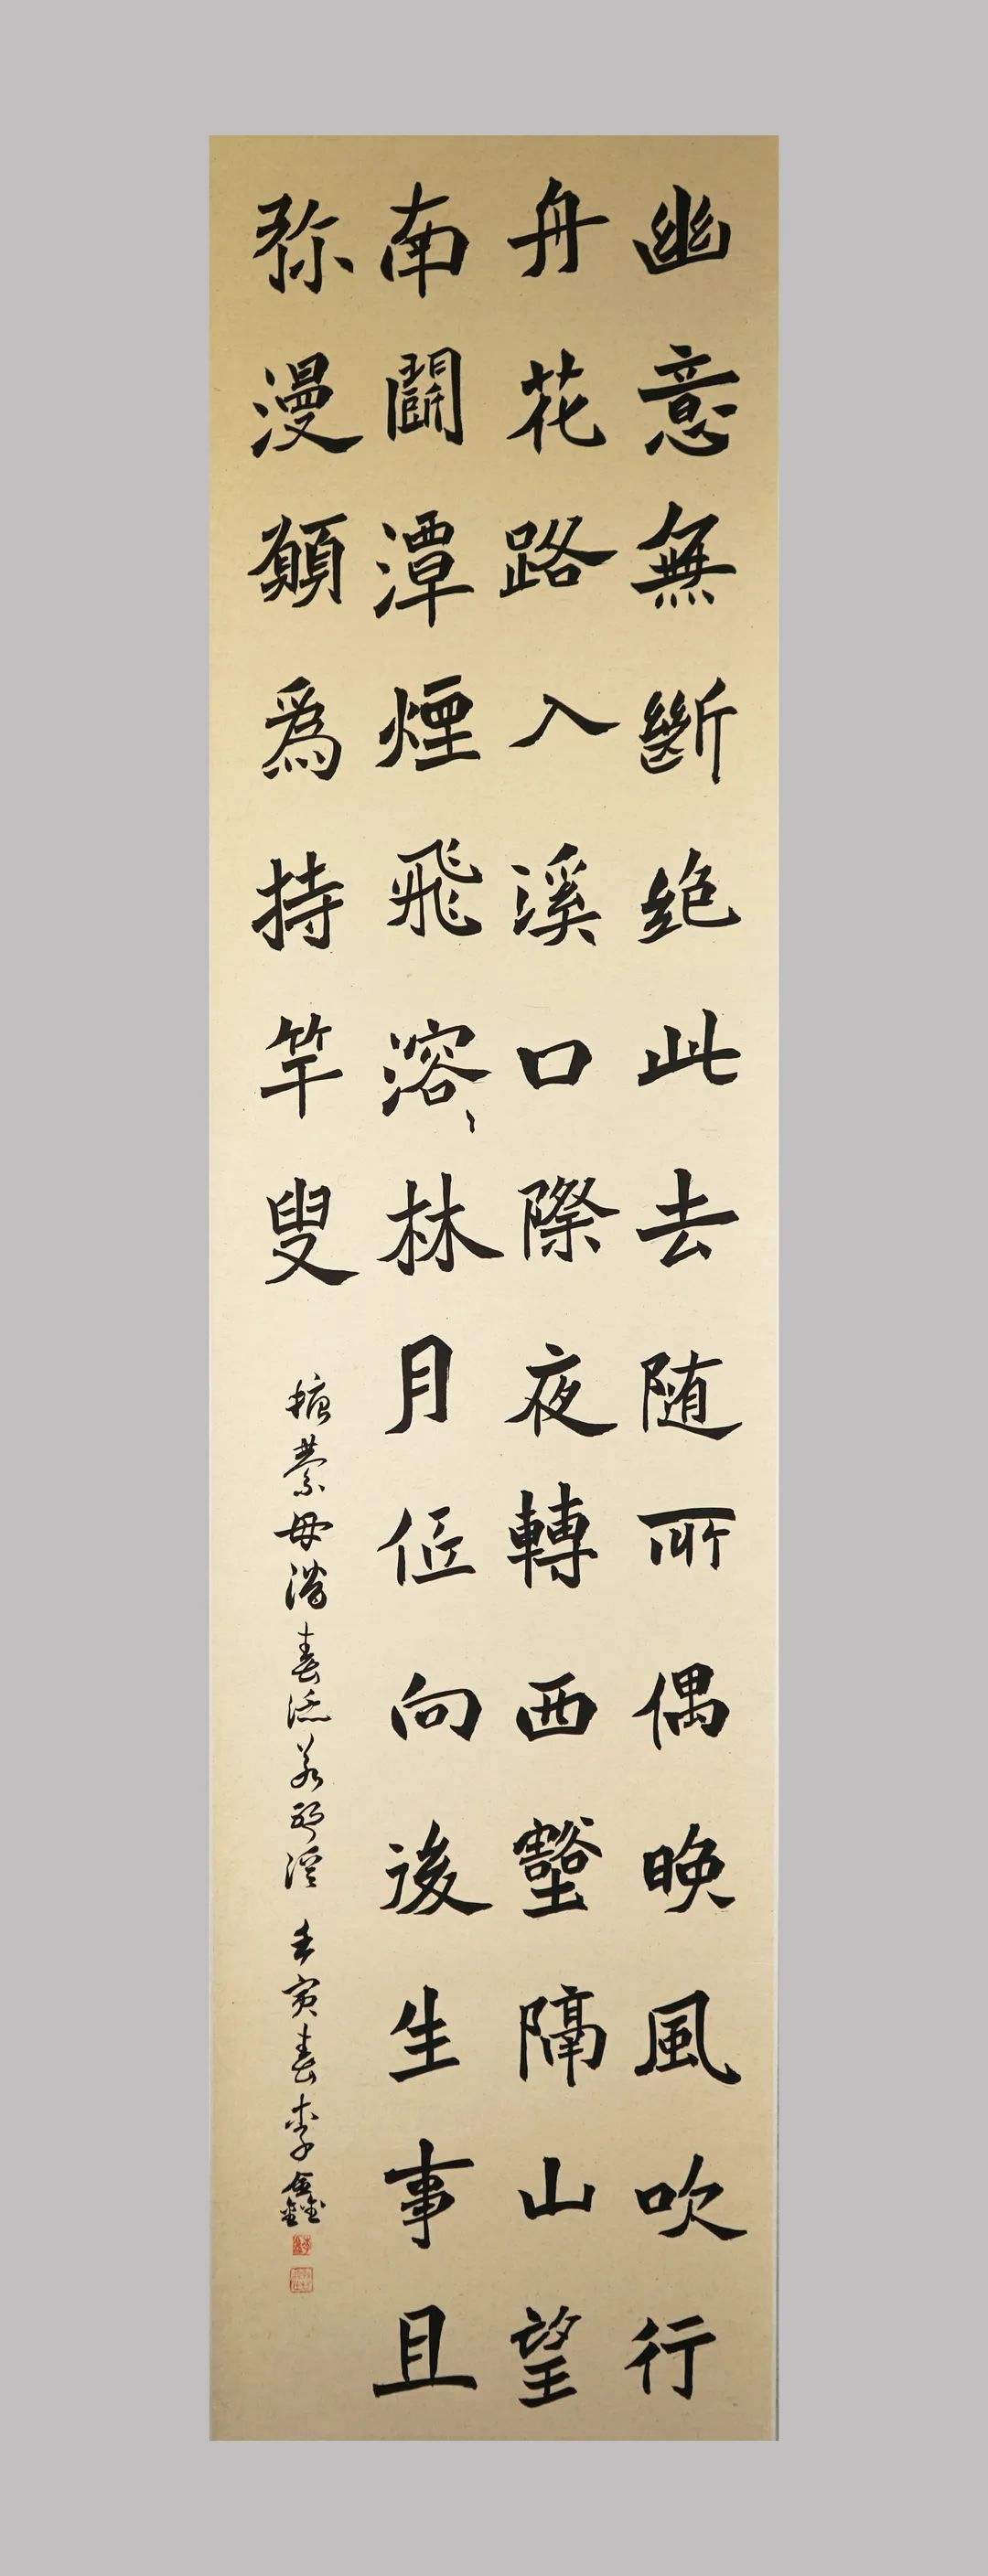 幽意無斷絶此去随所偶晚風吹行
舟花路入溪口際夜轉西壑隔山望
南鬭潭煙飛溶〻林月低向後生事且
弥漫願爲持竿叟
擿綦毋潛春泛若耶溪 壬寅春李鑫